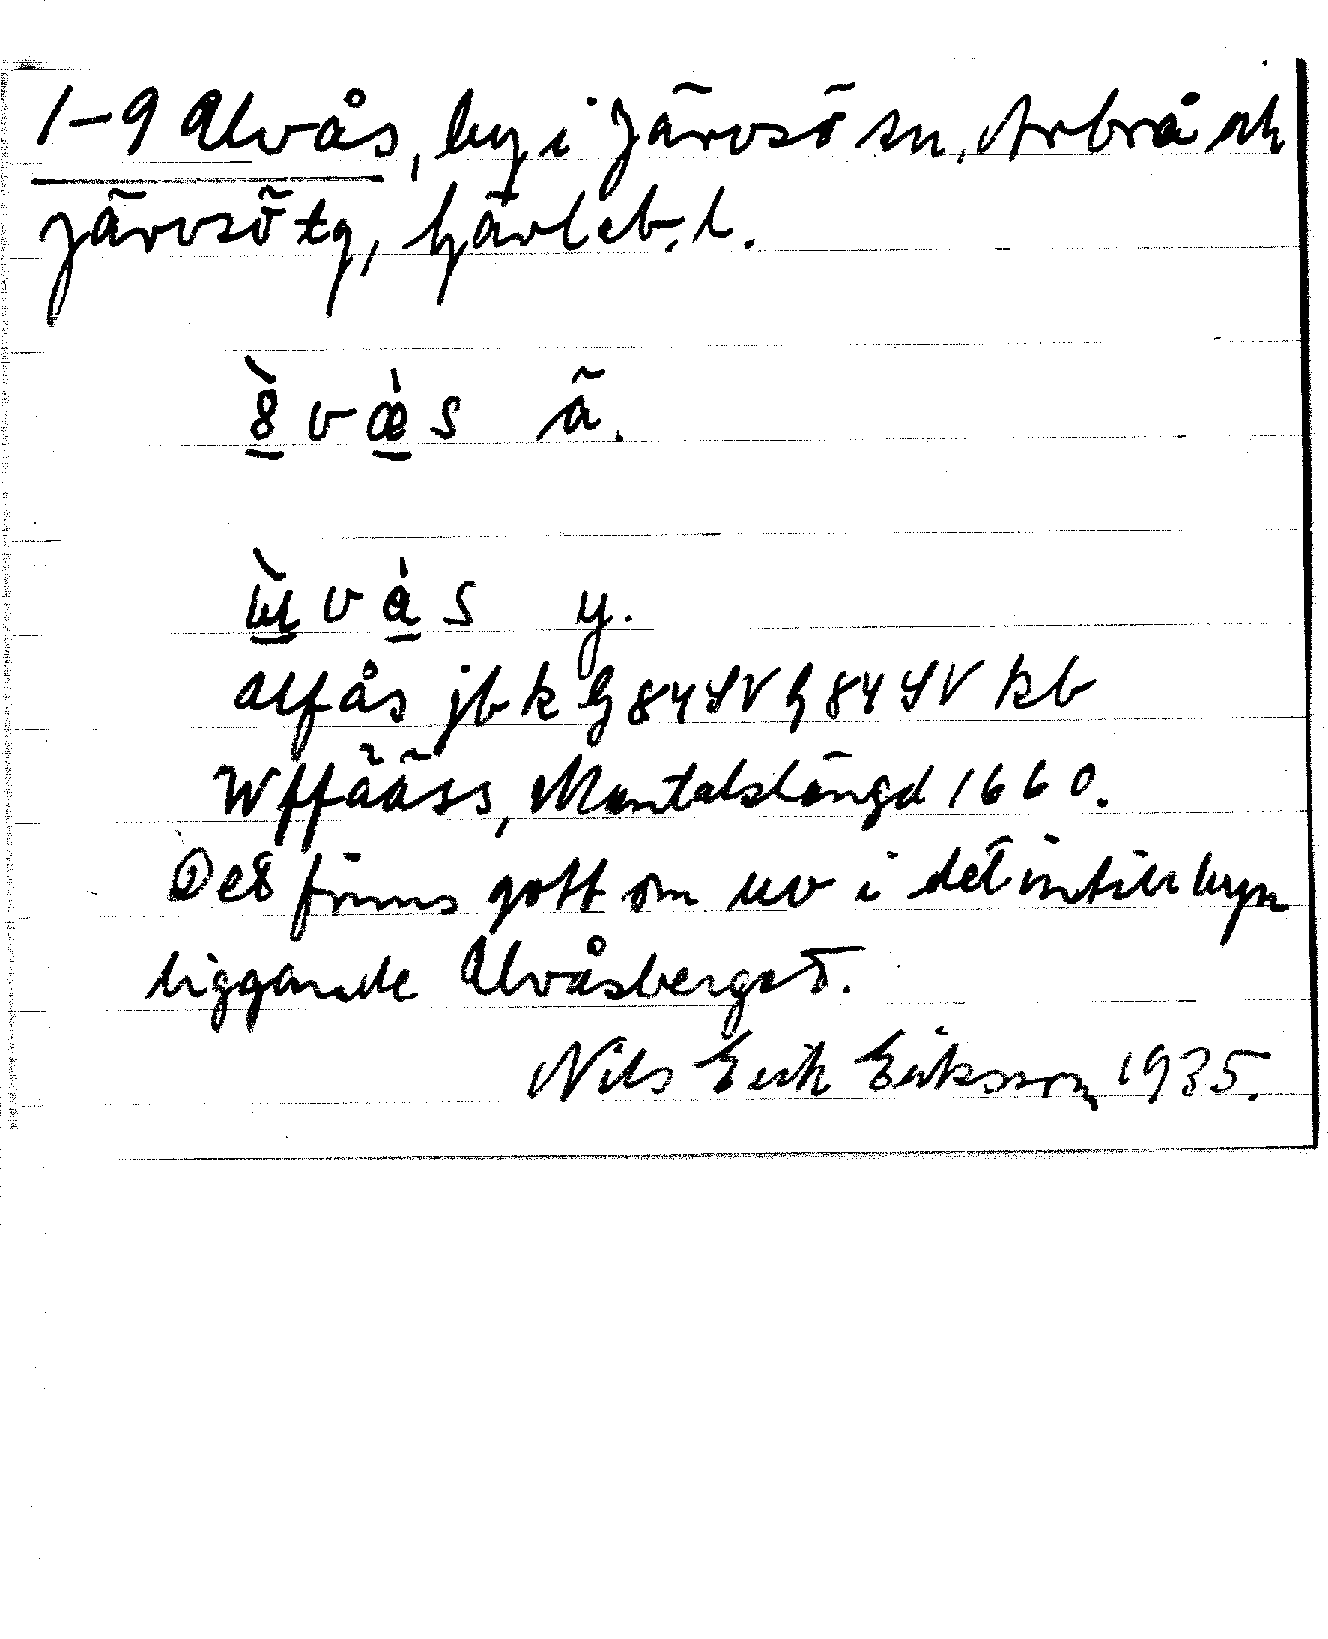 1–9 Ulvås, by i Järvsö sn, Arbrå och
Järvsö tg, Gävleb. l.
ä.
y.
Ulfås jbk G 84 SV G 84 SV kb
Wffääss, Mantalslängd 1660.
Det finns gott om uv i det intill byn
liggande Ulvåsberget.
Nils Erik Eriksson 1935.